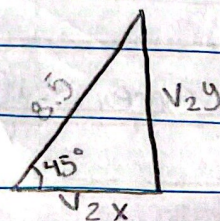 8.5
V2y
45°
V2x